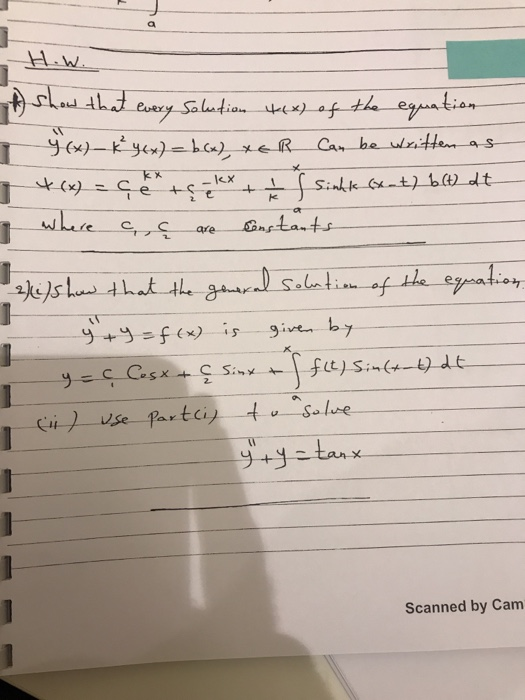 a
H.W.
1) Show that every Solution ψ(x) of the equation
y''(x) - k² y(x) = b(x), x ∈ ℝ Can be written as
ψ(x) = c₁ e^{kx} + c₂ e^{-kx} + 1/k ∫_a^x Sinhk (x-t) b(t) dt
where c₁, c₂ are Constants
2)(i) show that the general solution of the equation
y'' + y = f(x) is given by
y = c₁ Cosx + c₂ Sinx + ∫_a^x f(t) Sin(x-t) dt
(ii) Use Part(i) to solve
y'' + y = tanx
Scanned by Cam